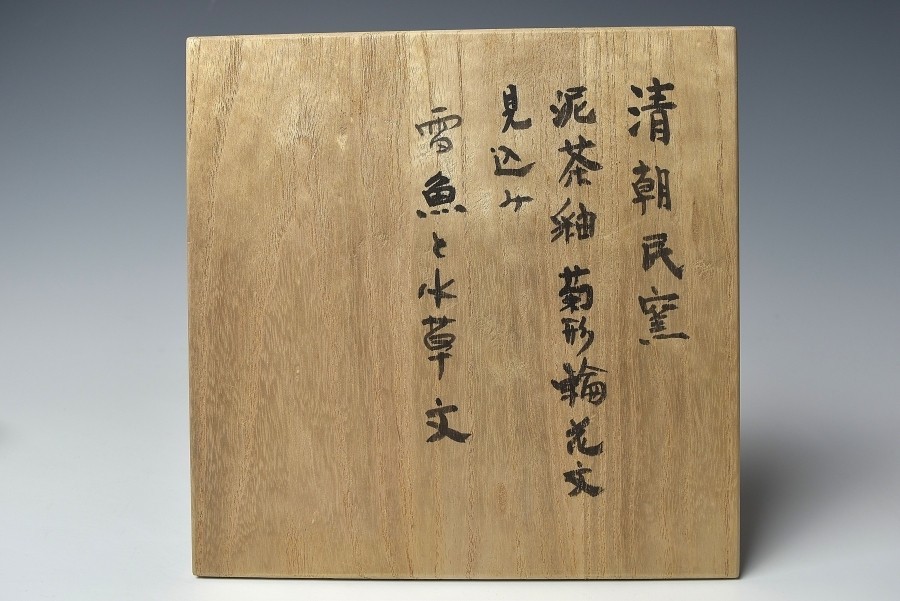 清朝民窯
泥茶釉 菊形輪花文
見込み
雪魚と水草文